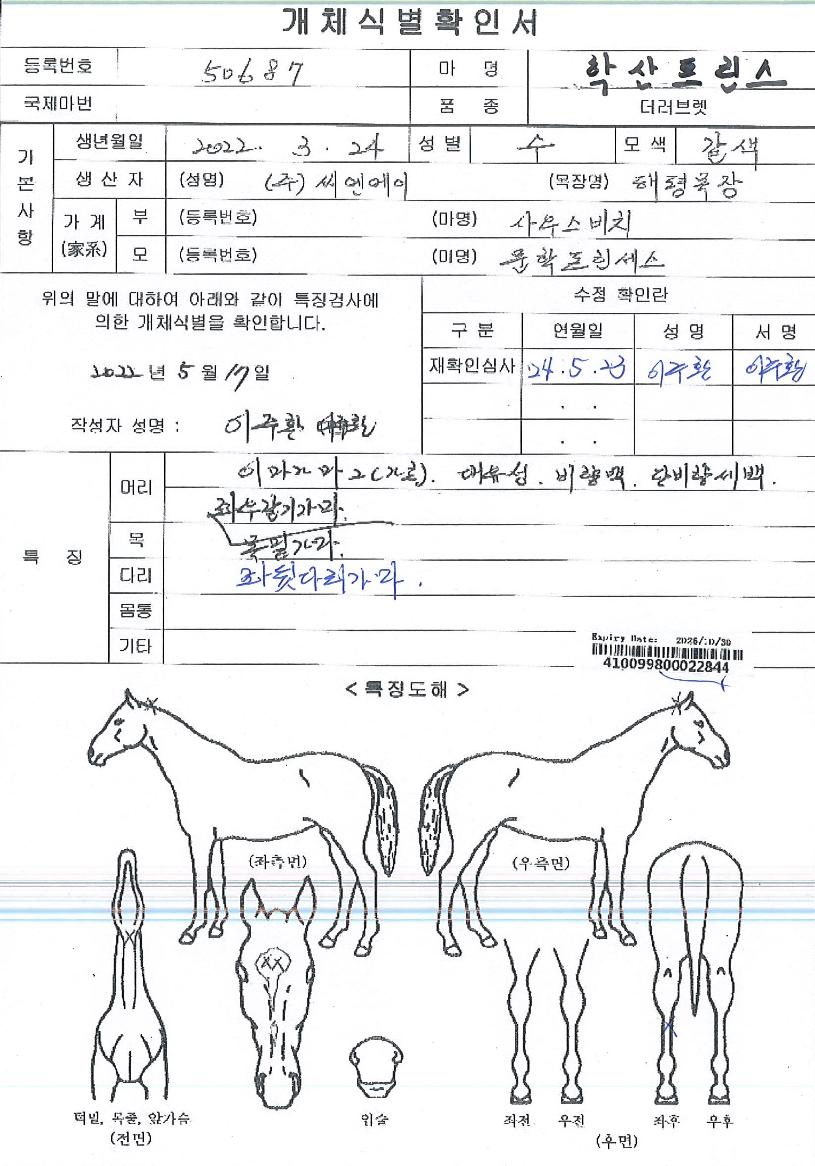 개체식별확인서
등록번호 50687 마 명 학산프린스
국제마번 품 종 더러브렛
기본사항
생년월일 2022. 3. 24 성별 수 모색 갈색
생산자 (성명) (주)씨엔에이 (목장명) 태평목장
가계(家系) 부 (등록번호) (마명) 사우스비치
모 (등록번호) (마명) 문학프린세스
위의 말에 대하여 아래와 같이 특징검사에
의한 개체식별을 확인합니다.
2022 년 5 월 17 일
작성자 성명 : 이주환
수정 확인란
구분 연월일 성명 서명
재확인심사 24. 5. 23 이주환 이주환
. .
. .
특 징
머리 이마가마2(가로). 대유성. 비량백. 단비량세백.
좌우갈기가마.
목
다리 좌뒷다리가마.
몸통
기타
Expiry Date: 2026/10/30
410099800022844
<특징도해>
(좌측면) (우측면)
턱밑, 목줄, 앞가슴
(전면)
입술
좌전 우전 좌후 우후
(후면)